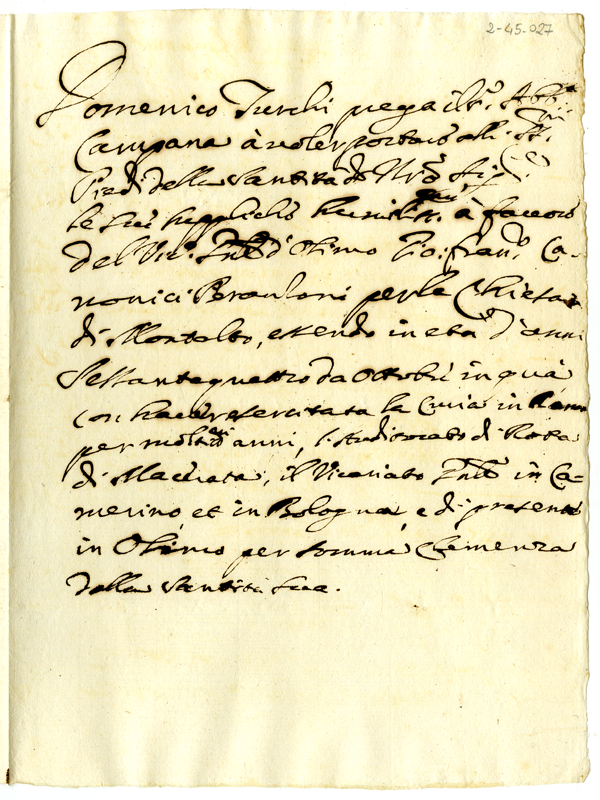 2-45-027
Domenico Turchi prega il Sr. Abb.
Campana à voler portare alli SS.
Piedi della Santità di Nro Sigre
le sue suppliche humilis. à favore
del Vic. Gnle d'Osimo Gio: Fran. Ca-
nonici per la Chiesa
di Montalto, essendo in età d'anni
Sessantaquattro da Ottobre in quà
con haver esercitata la Curia in Roma
per molti anni, l'Auditorato di Rota
di Macerata, il Vicariato Gnle in Ca-
merino, et in Bologna, e di presente
in Osimo per somma Clemenza
della Santità Sua.